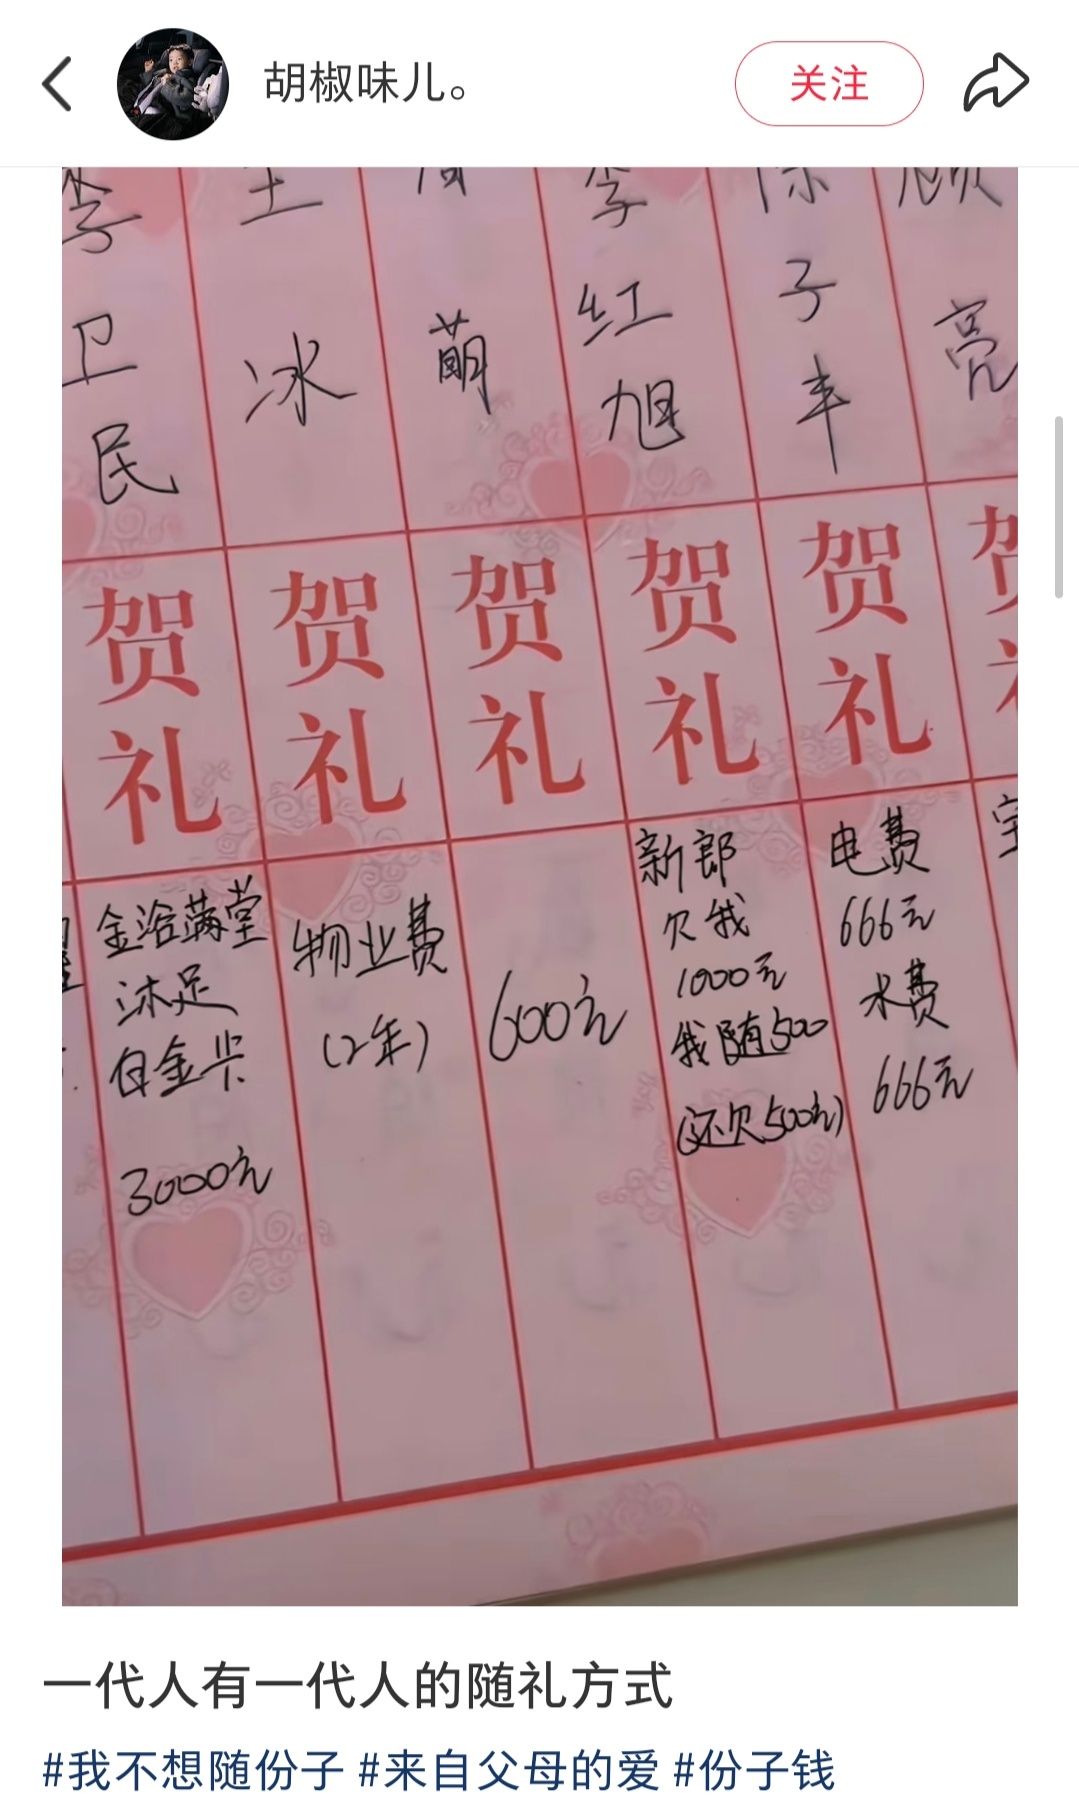 胡椒味儿。
关注
李卫民
贺礼
金浴满堂
沐足
白金卡
3000元
王冰
贺礼
物业费
(2年)
萌
贺礼
600元
李红旭
贺礼
新郎
欠我
1000元
我随500
(还欠500元)
徐子丰
贺礼
电费
666元
水费
666元
亮
贺
一代人有一代人的随礼方式
#我不想随份子 #来自父母的爱 #份子钱